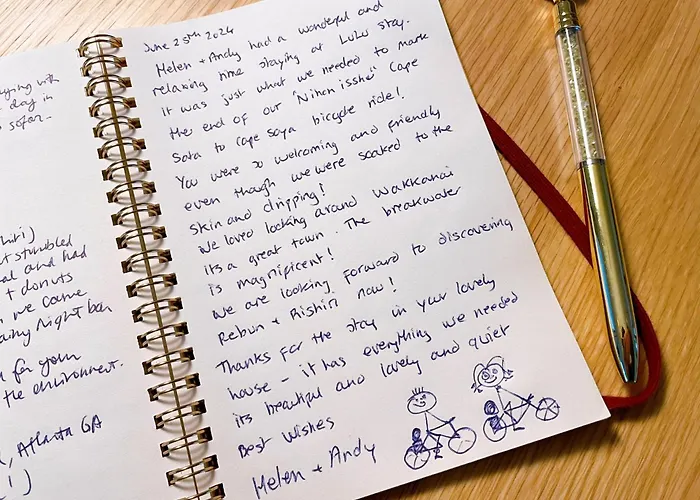 aying with
day in
sofar-
hiri)
t stumbled
al and had
+ donuts
n we came
Night bar
n for your
the environment.
, Atlanta GA
June 25th 2024
Helen + Andy had a wonderful and
relaxing time staying at Lulu stay.
It was just what we needed to mark
the end of our "Nihon isshu" Cape
Sata to Cape Soya bicycle ride!
You were so welcoming and friendly
even though we were soaked to the
skin and dripping!
We loved looking around Wakkanai
its a great town. The breakwater
is magnificent!
We are looking forward to discovering
Rebun + Rishiri now!
Thanks for the stay in your lovely
house - it has everything we needed
its beautiful and lovely and quiet
Best Wishes
Helen + Andy